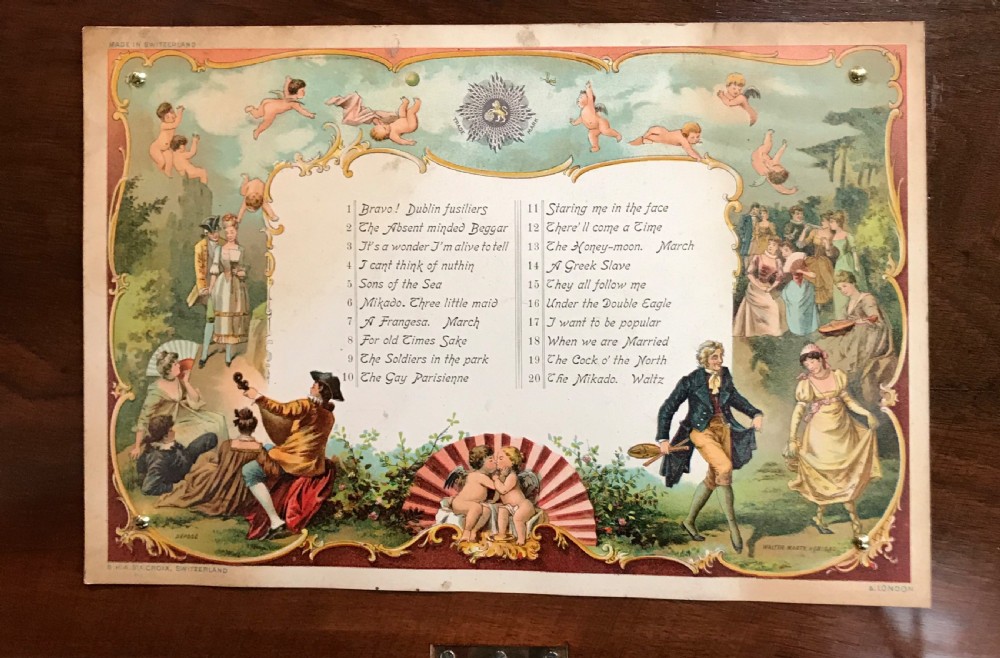 MADE IN SWITZERLAND
TRADE MARK
1 Bravo! Dublin fusiliers
2 The Absent minded Beggar
3 It's a wonder I'm alive to tell
4 I cant think of nuthin
5 Sons of the Sea
6 Mikado. Three little maid
7 A Frangesa. March
8 For old Times Sake
9 The Soldiers in the park
10 The Gay Parisienne
11 Staring me in the face
12 There'll come a Time
13 The Honey-moon. March
14 A Greek Slave
15 They all follow me
16 Under the Double Eagle
17 I want to be popular
18 When we are Married
19 The Cock o' the North
20 The Mikado. Waltz
DEPOSÉ
STE CROIX, SWITZERLAND
& LONDON